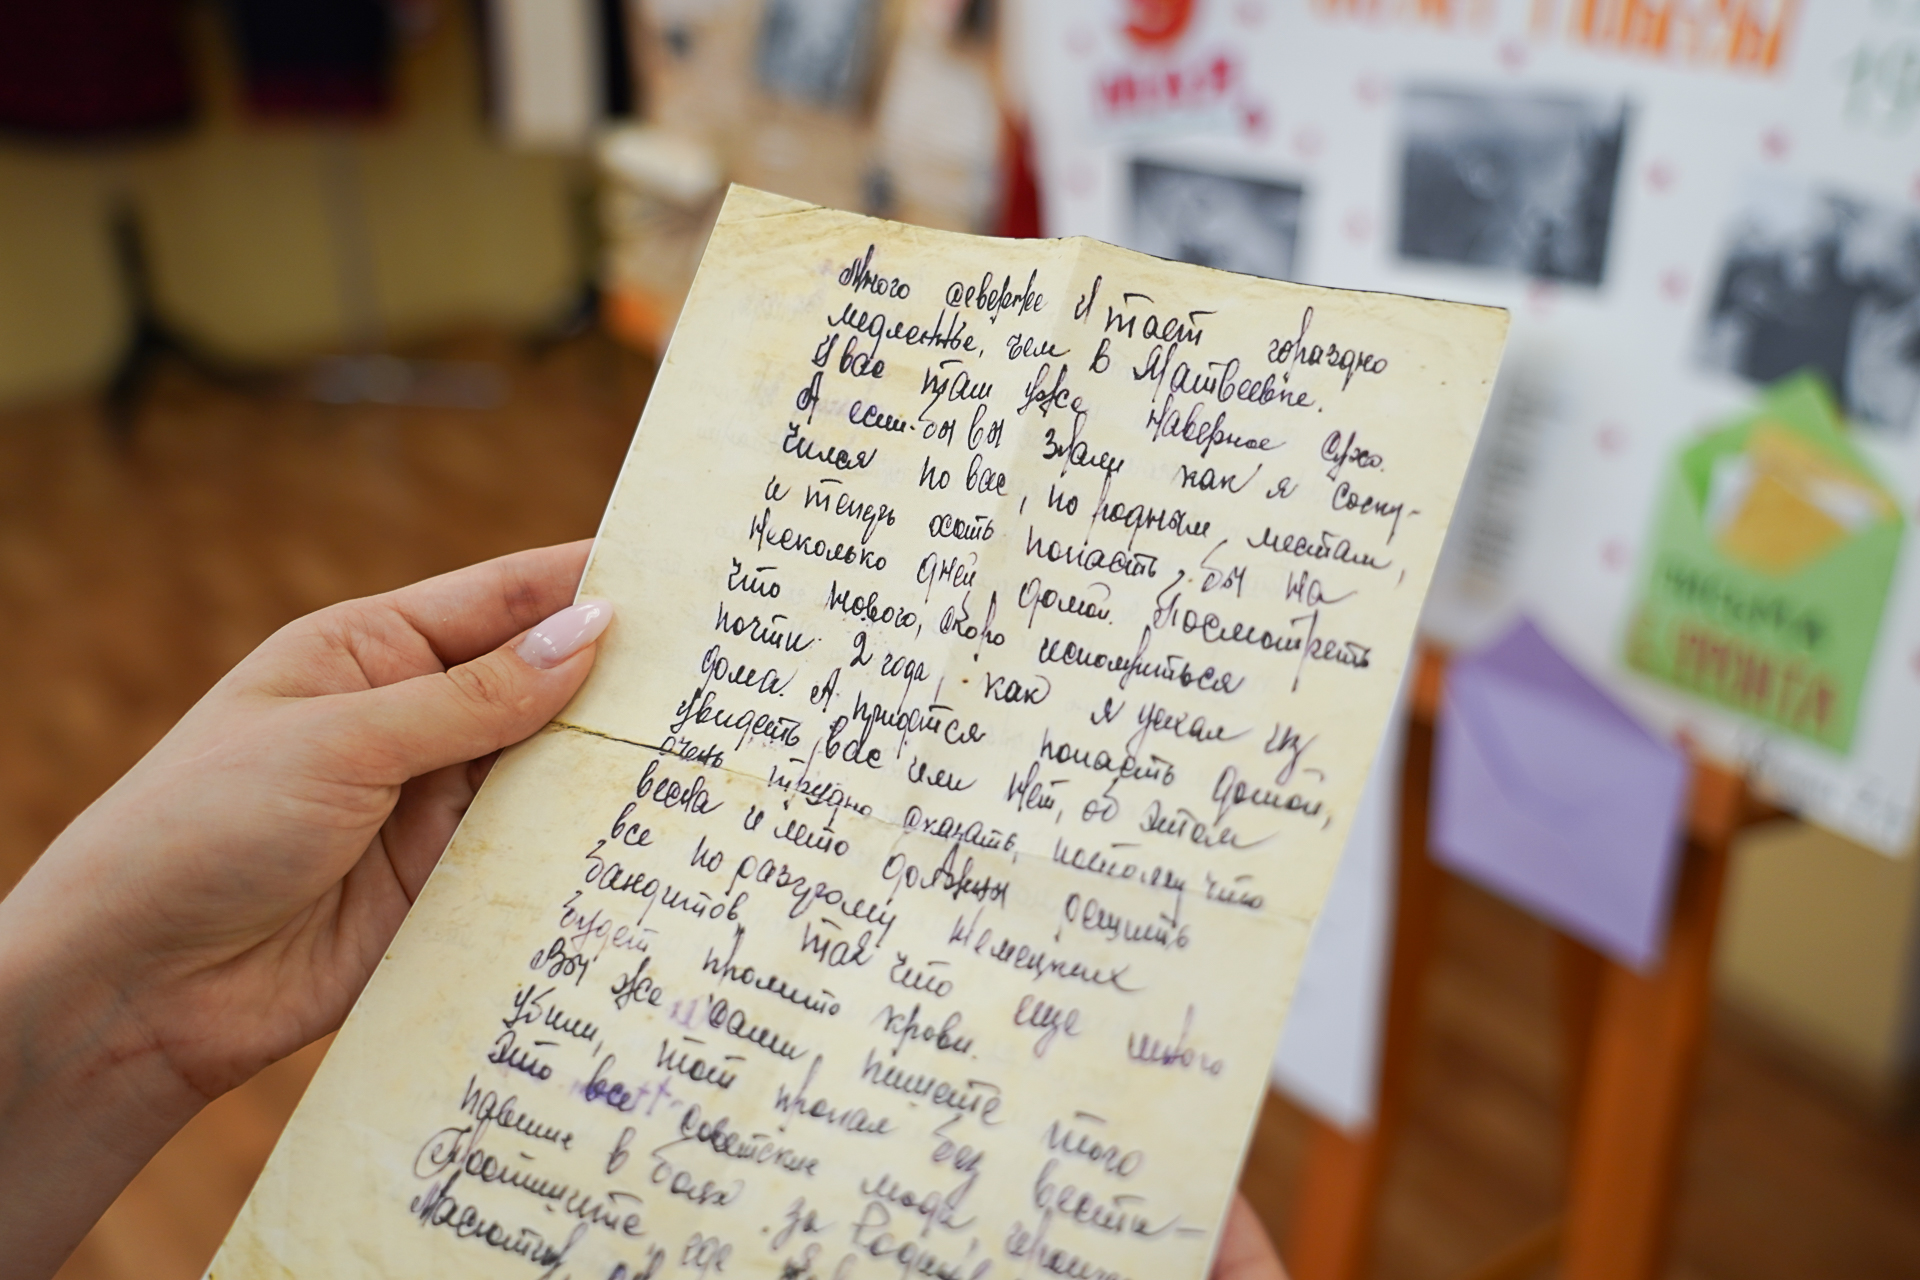 Много севернее И тает гораздо
медленнее, чем в Матвеевке.
У вас там уже наверное сухо.
А если-бы вы знали как я соску-
чился по вас, по родным местам,
и теперь хоть попасть бы на
несколько дней домой. Посмотреть
что нового, скоро исполниться
почти 2 года, как я уехал из
дома. А придется попасть домой,
увидеть вас или нет, об этом
очень трудно сказать, потому что
весна и лето должны решить
все по разгрому немецких
бандитов, так что еще много
будет пролито крови.
Вы же сами пишете того
убили, тот пропал без вести-
Это все советские люди,
павшие в боях за Родину
где я
9
мая
Письма
с фронта